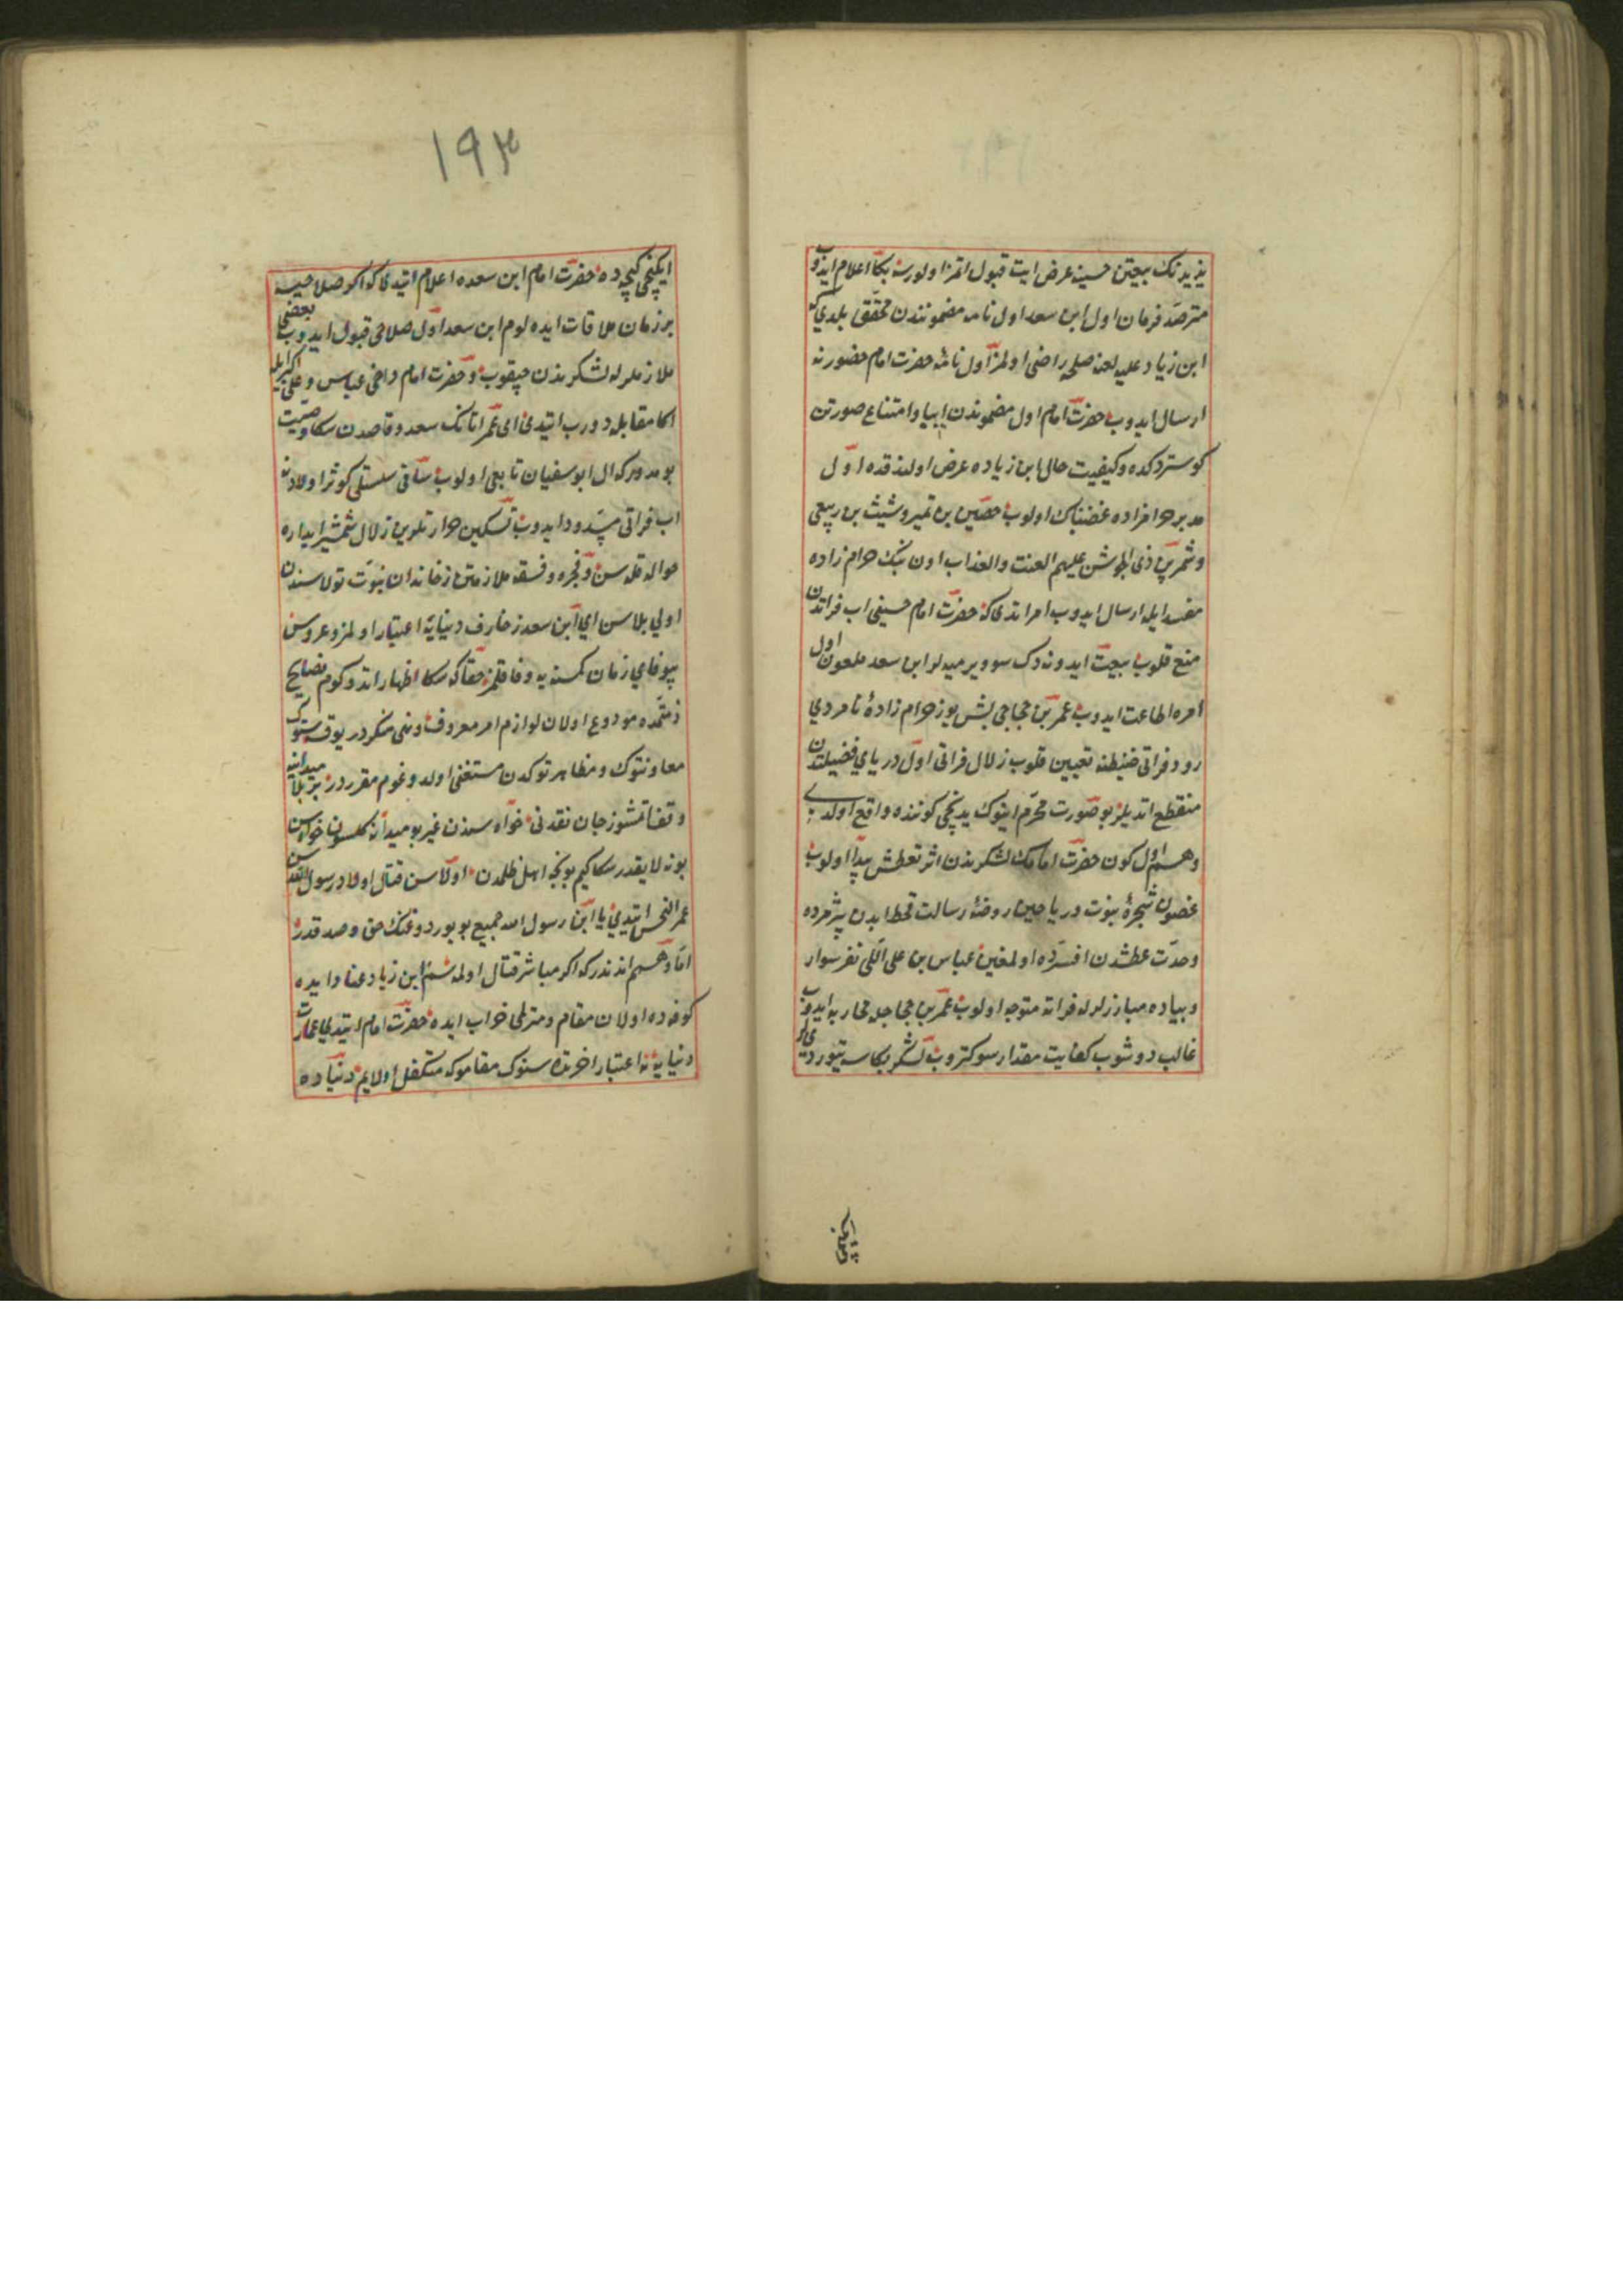 یزیدنک بیعتن حسینه عرض ایت قبول اتمز اولورسه بکا اعلام ایدوب
مترصد فرمان اول ابن سعد اول نامه مضمونندن محقق بلدی که
ابن زیاد علیه لعنه صلحه راضی اولمز اول نامهٔ حضرت امام حضورنه
ارسال ایدوب حضرت امام اول مضموندن ابا و امتناع صورتن
کوستردکده و کیفیت حال ابن زیاده عرض اولندقده اول
مدبر حرامزاده غضبناک اولوب حصین بن نمیر و شیث بن ربیعی
و شمر بن ذی الجوشن علیهم العنت والعذاب اون بیک حرام زاده
مفسد ایله ارسال ایدوب امر اتدی که حضرت امام حسینی اب فراتدن
منع قلوب بیعت ایدونه دک سو ویرمیه لر ابن سعد ملعون اول
امره اطاعت ایدوب عمر بن حجاجی بش یوز حرام زادهٔ نامردی
رود فراتی ضبطنه تعیین قلوب زلال فراتی اول دریای فضیلتدن
منقطع اتدیلر بو صورت محرم اینوک یدنجی کوننده واقع اولدی
و هم اول کون حضرت امامک لشکرندن اثر تعطش پیدا اولوب
غصون شجرهٔ نبوت و ریاحین روضهٔ رسالت قحط ابدن پژمرده
و حدت عطشدن افسرده اولمغین عباس بن علی اللی نفر سوار
و پیاده مبارزلرله فراته متوجه اولوب عمر بن حجاجله محاربه ایدوب
غالب دوشوب کفایت مقدار سو کتروب لشکر بکاسه یتوردیلر
ایکنجی
۱۹۳
ایکنجی کیجه ده حضرت امام ابن سعده اعلام ایتدی که اکر صلاحیسه
بر زمان ملاقات ایده لوم ابن سعد اول صلاحی قبول ایدوب بعضی
ملازملرله لشکرندن چیقوب و حضرت امام داخی عباس و علی اکبرایله
اکا مقابل دورب ایتدی ای عمر اتانک سعد وقاصدن سکا وصیت
بومدور که ال ابو سفیان تابعی اولوب ساقی سلسبیل کوثر اولادنه
اب فراتی مسدود ایدوب تسکین حرارتلرین زلال شمشیر ابداره
حواله قله سن و فجره و فسقه ملازمتن زخاندان نبوت تولاسندن
اولی بلاسن ای ابن سعد زخارف دنیایه اعتبار اولمز و عروس
بیوفای زمان کمسنه یه وفا قلمز حقا که سکا اظهار اتدوکوم نصایح
ذمتمده مودوع اولان لوازم امر معروف و نهی منکردر یوقسه سنوک
معاونتوک و مظاهرتوکدن مستغنی اولدوغوم مقرردر بز بلا میداننه
وقف اتمشوز جان نقدنی خواه سندن غیر بو میدانه کلسون خواه سن
بو نه لایقدر سکا کیم بونجه اهل ظلمدن اولاسن قتال اولاد رسول الله سن
عمر النحس ایتدی یا ابن رسول الله جمیع بویوردوغنک حق و صدقدر
اما وهم اندندر که اکر مباشر قتال اولمه سم ابن زیاد عنا و ایده
کوفه ده اولان مقام و منزلمی خراب ایده حضرت امام ایتدی عمارت
دنیایه نه اعتبار اخرتده سنوک مقاموکه متکفل اولایم دنیاده